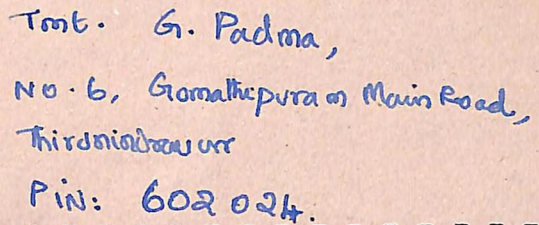 Tmt. G. Padma,
No. 6, Gomathipuram Main Road,
Thirunindravur
PIN: 602 024.